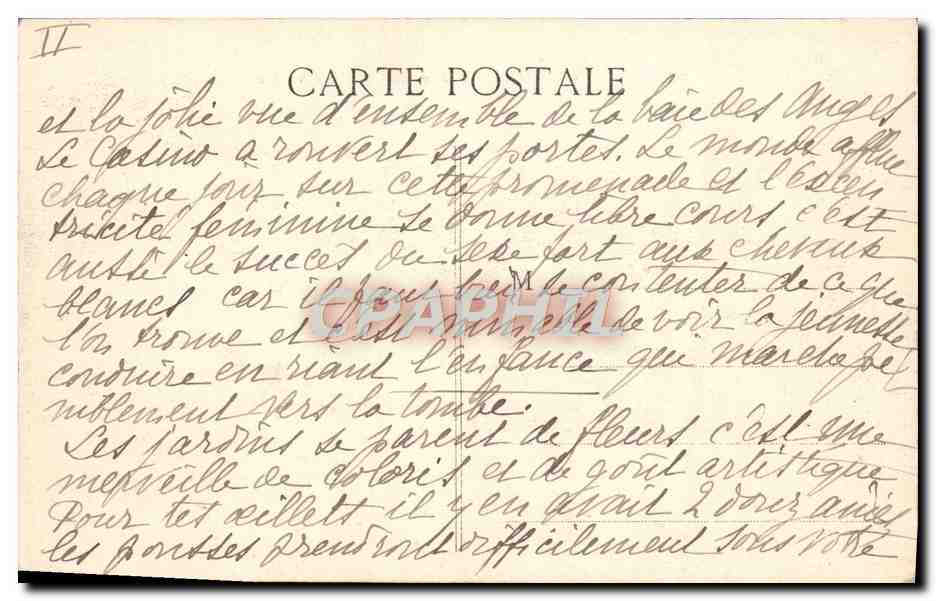 II
CARTE POSTALE
et la jolie vue d'ensemble de la baie des Anges
Le Casino a rouvert ses portes. Le monde afflue
chaque jour sur cette promenade et l'excen
tricité feminine se donne libre cours c'est
aussi le succès du sexe fort aux cheveux
blancs car il faut bien se contenter de ce que
M
CPAPHIL
l'on trouve et c'est risible de voir la jeunesse
conduire en riant l'enfance qui marche pé
niblement vers la tombe.
Les jardins se parent de fleurs c'est une
merveille de coloris et de goût artistique
Pour tes œillets il y en avait 2 douzaines
les pousses prendront difficilement sous votre